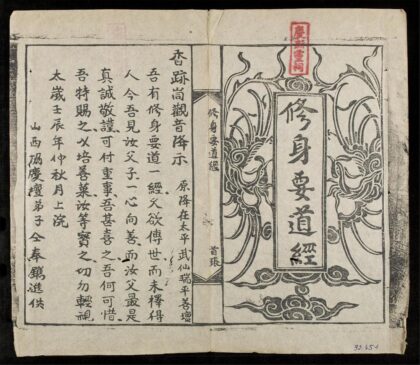 修身要道經
修身要道經
首張
香跡崗觀音降示
原降在太平武仙瑞平善壇
吾有修身要道一經久欲傳世而未擇得
人今吾見汝父子一心向善而汝父最是
真誠敬謹可付重事吾甚喜之吾何可惜
吾特賜之以培善菓汝等寶之切勿輕視
太歲壬辰年仲秋月上浣
山西慶壇弟子仝奉鐫進供